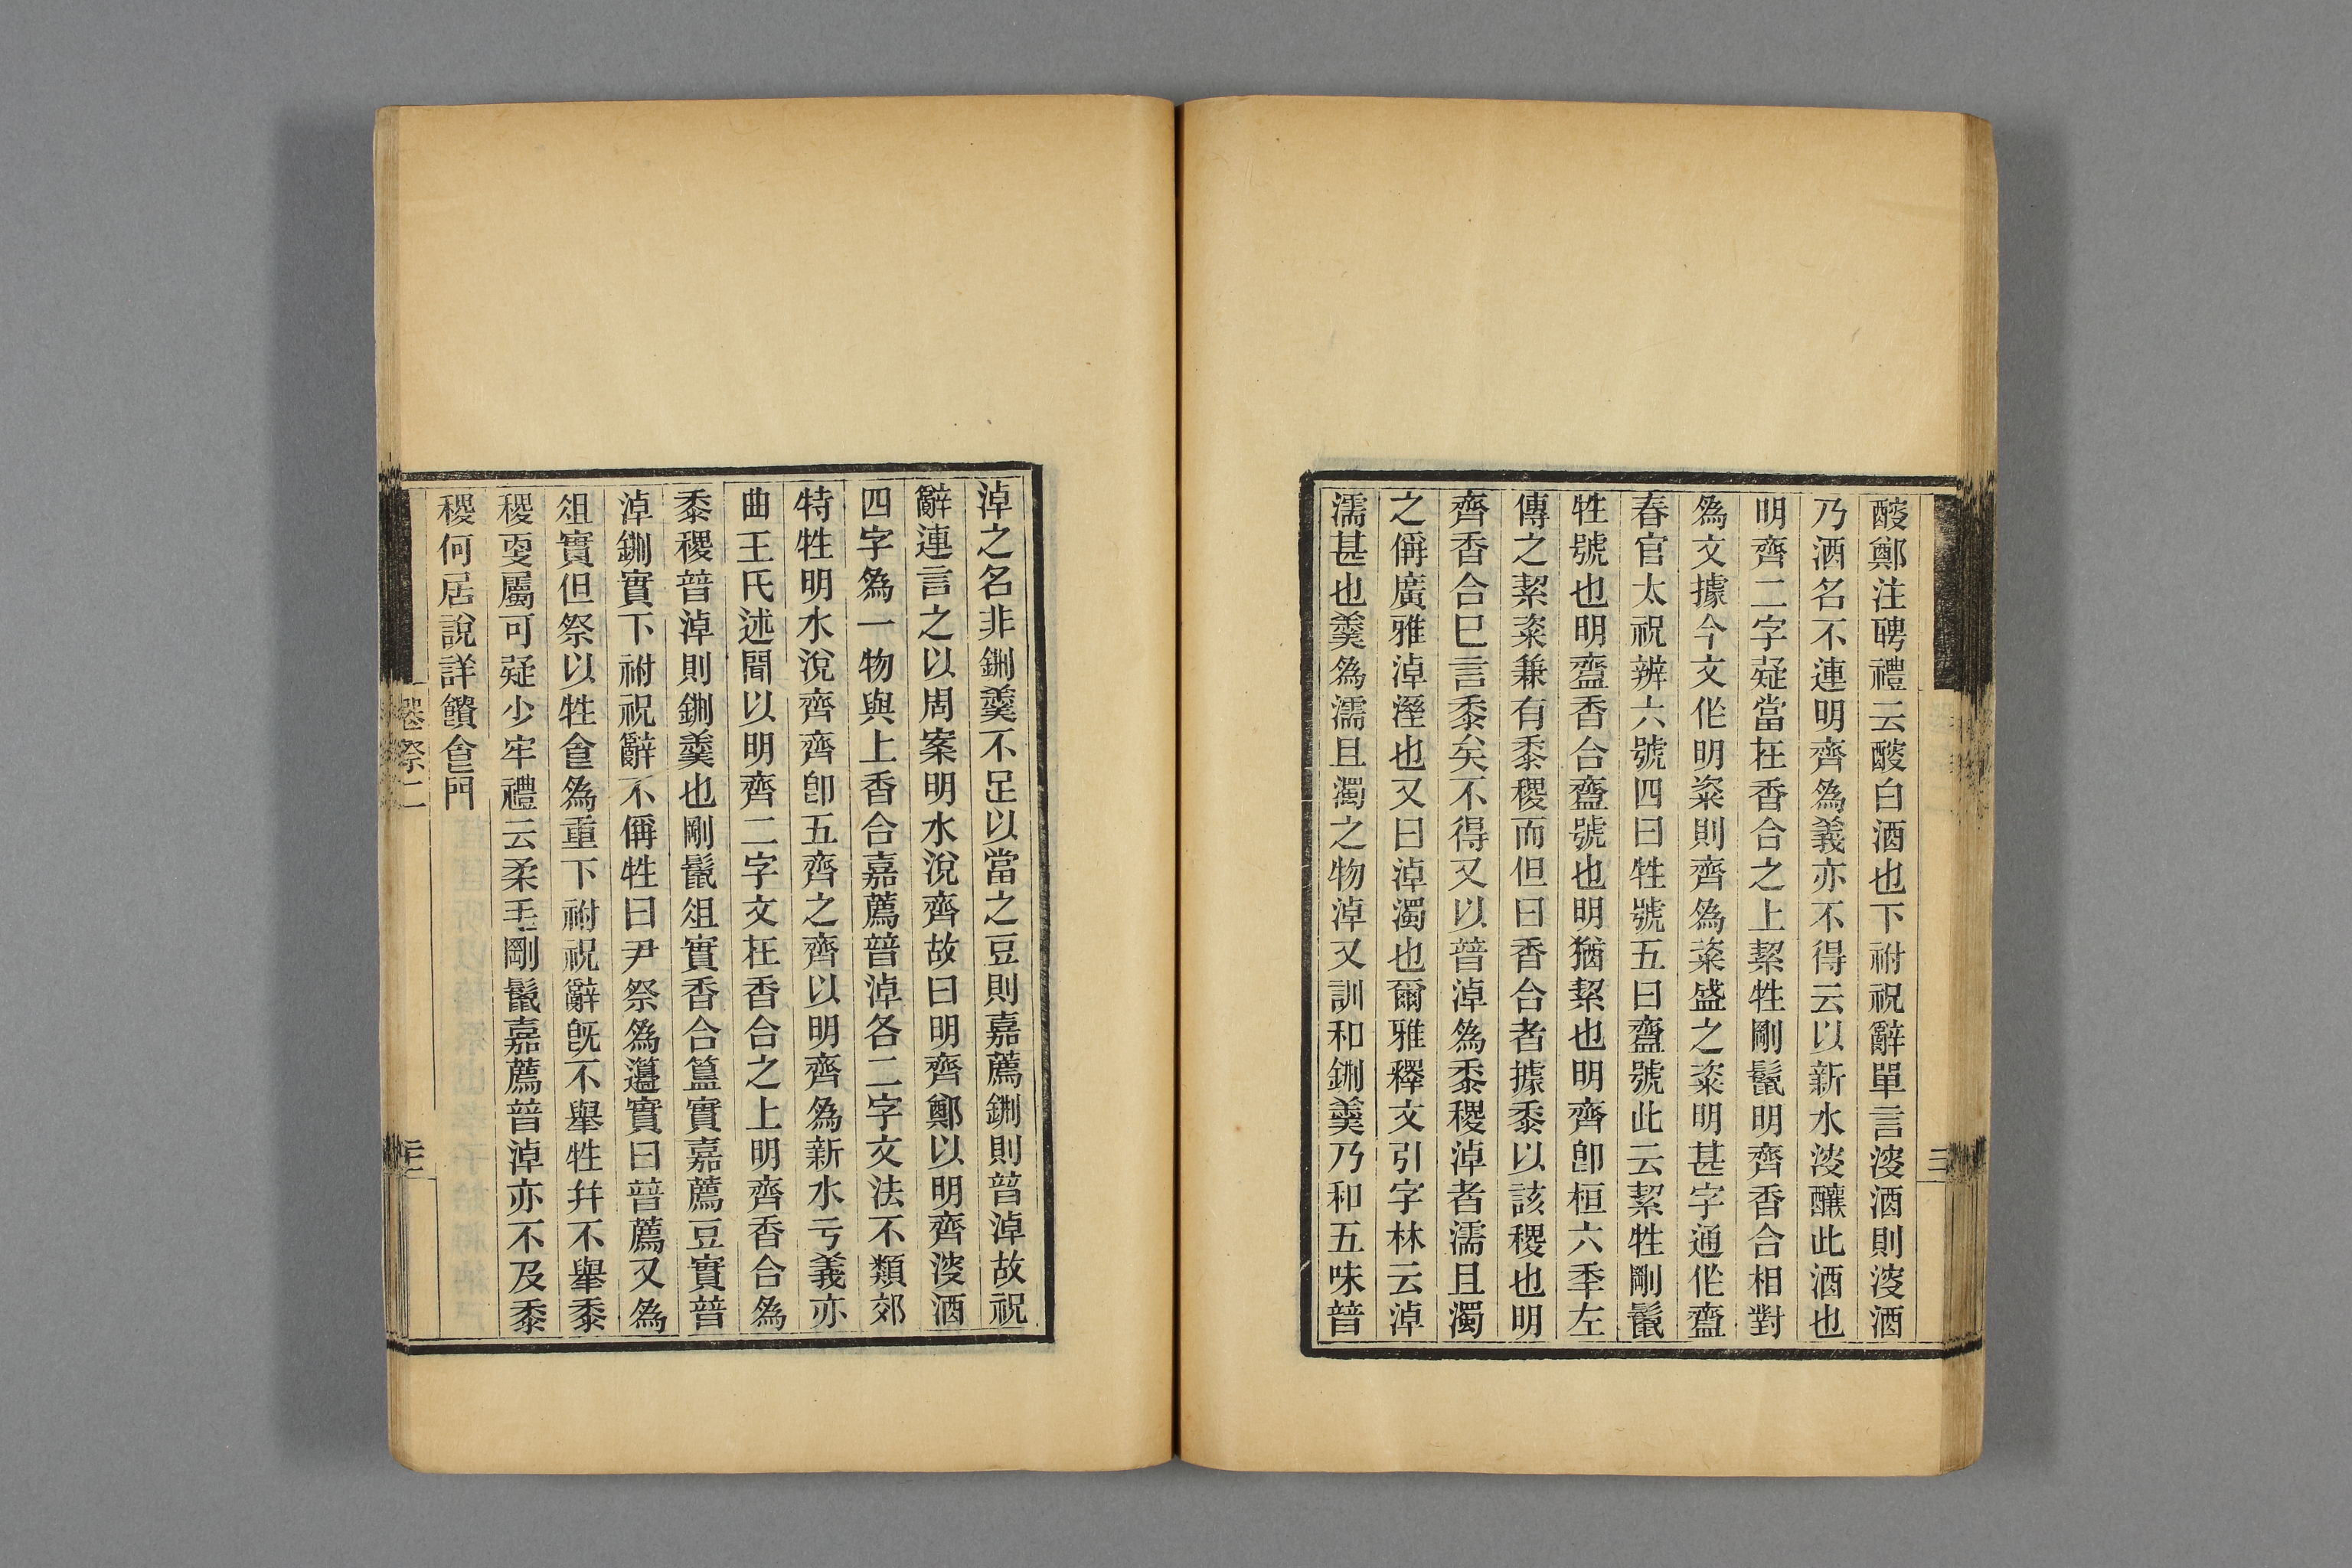 酸鄭注聘禮云酸白酒也下祔祝辭單言溲酒則溲酒
乃酒名不連明齊爲義亦不得云以新水溲釀此酒也
明齊二字疑當在香合之上絜牲剛鬣明齊香合相對
爲文據今文作明粢則齊爲粢盛之粢明甚字通作齍
春官太祝辨六號四曰牲號五曰齍號此云絜牲剛鬣
牲號也明齍香合齍號也明猶絜也明齊卽桓六季左
傳之絜粢兼有黍稷而但曰香合者據黍以該稷也明
齊香合巳言黍矣不得又以普淖爲黍稷淖者濡且濁
之偁廣雅淖溼也又曰淖濁也爾雅釋文引字林云淖
濡甚也羹爲濡且濁之物淖又訓和鉶羹乃和五味普
淖之名非鉶羹不足以當之豆則嘉薦鉶則普淖故祝
辭連言之以周案明水涗齊故曰明齊鄭以明齊溲酒
四字爲一物與上香合嘉薦普淖各二字文法不類郊
特牲明水涗齊齊卽五齊之齊以明齊爲新水亏義亦
曲王氏述聞以明齊二字文在香合之上明齊香合爲
黍稷普淖則鉶羹也剛鬣俎實香合簋實嘉薦豆實普
淖鉶實下祔祝辭不偁牲曰尹祭爲籩實曰普薦又爲
俎實但祭以牲食爲重下祔祝辭旣不舉牲幷不舉黍
稷㪅屬可疑少牢禮云柔毛剛鬣嘉薦普淖亦不及黍
稷何居說詳饋食門
卷祭二